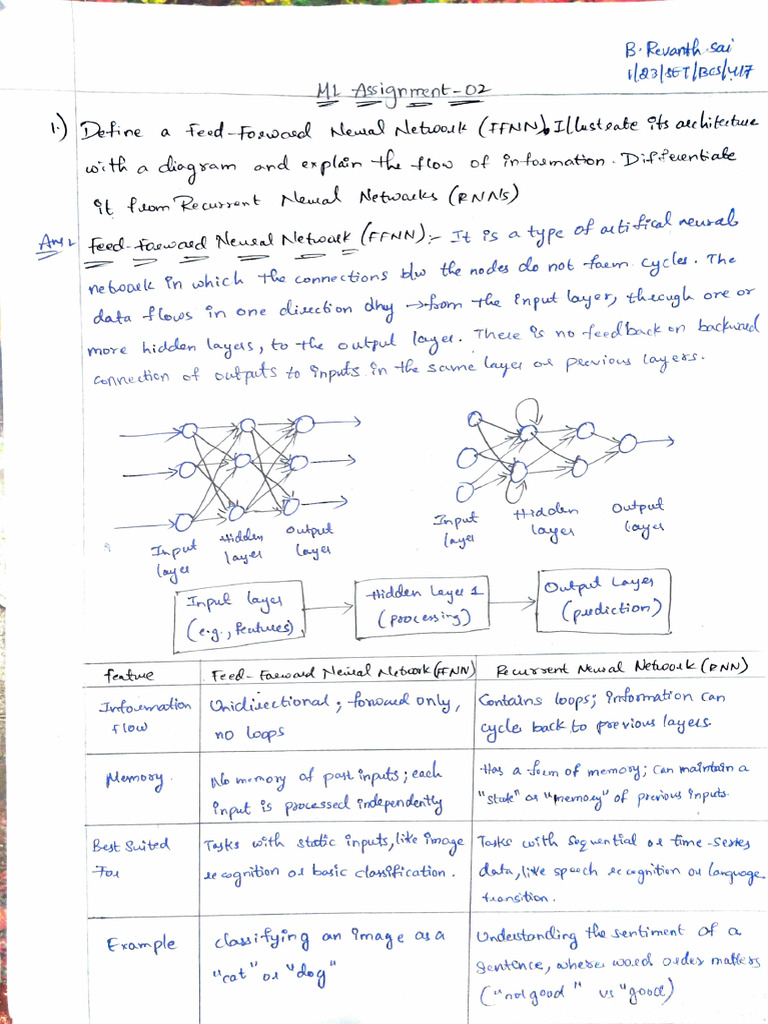 B. Revanth Sai
1/23/SET/BCS/417
ML Assignment-02
1.) Define a Feed-Forward Neural Network (FFNN). Illustrate its architecture
with a diagram and explain the flow of information. Differentiate
it from Recurrent Neural Networks (RNN's)
Ans:- Feed-Forward Neural Network (FFNN):- It is a type of artifical neural
network in which the connections b/w the nodes do not form cycles. The
data flows in one direction only → from the input layer, through one or
more hidden layers, to the output layer. There is no feedback or backward
connection of outputs to inputs in the same layer or previous layers.
Input layer
Hidden layer
Output layer
Input layer
Hidden layer
Output layer
Input layer
(e.g., features)
Hidden Layer 1
(processing)
Output Layer
(prediction)
feature Feed-Forward Neural Network (FFNN) Recurrent Neural Network (RNN)
Information flow
Unidirectional; forward only,
no loops
Contains loops; information can
cycle back to previous layers.
Memory.
No memory of past inputs; each
input is processed independently
Has a form of memory; can maintain a
"state" or "memory" of previous inputs.
Best Suited
For
Tasks with static inputs, like image
recognition or basic classification.
Tasks with sequential or time-series
data, like speech recognition or language
transition.
Example
classifying an image as a
"cat" or "dog"
Understanding the sentiment of a
sentence, where word order matters
("not good" vs "good")